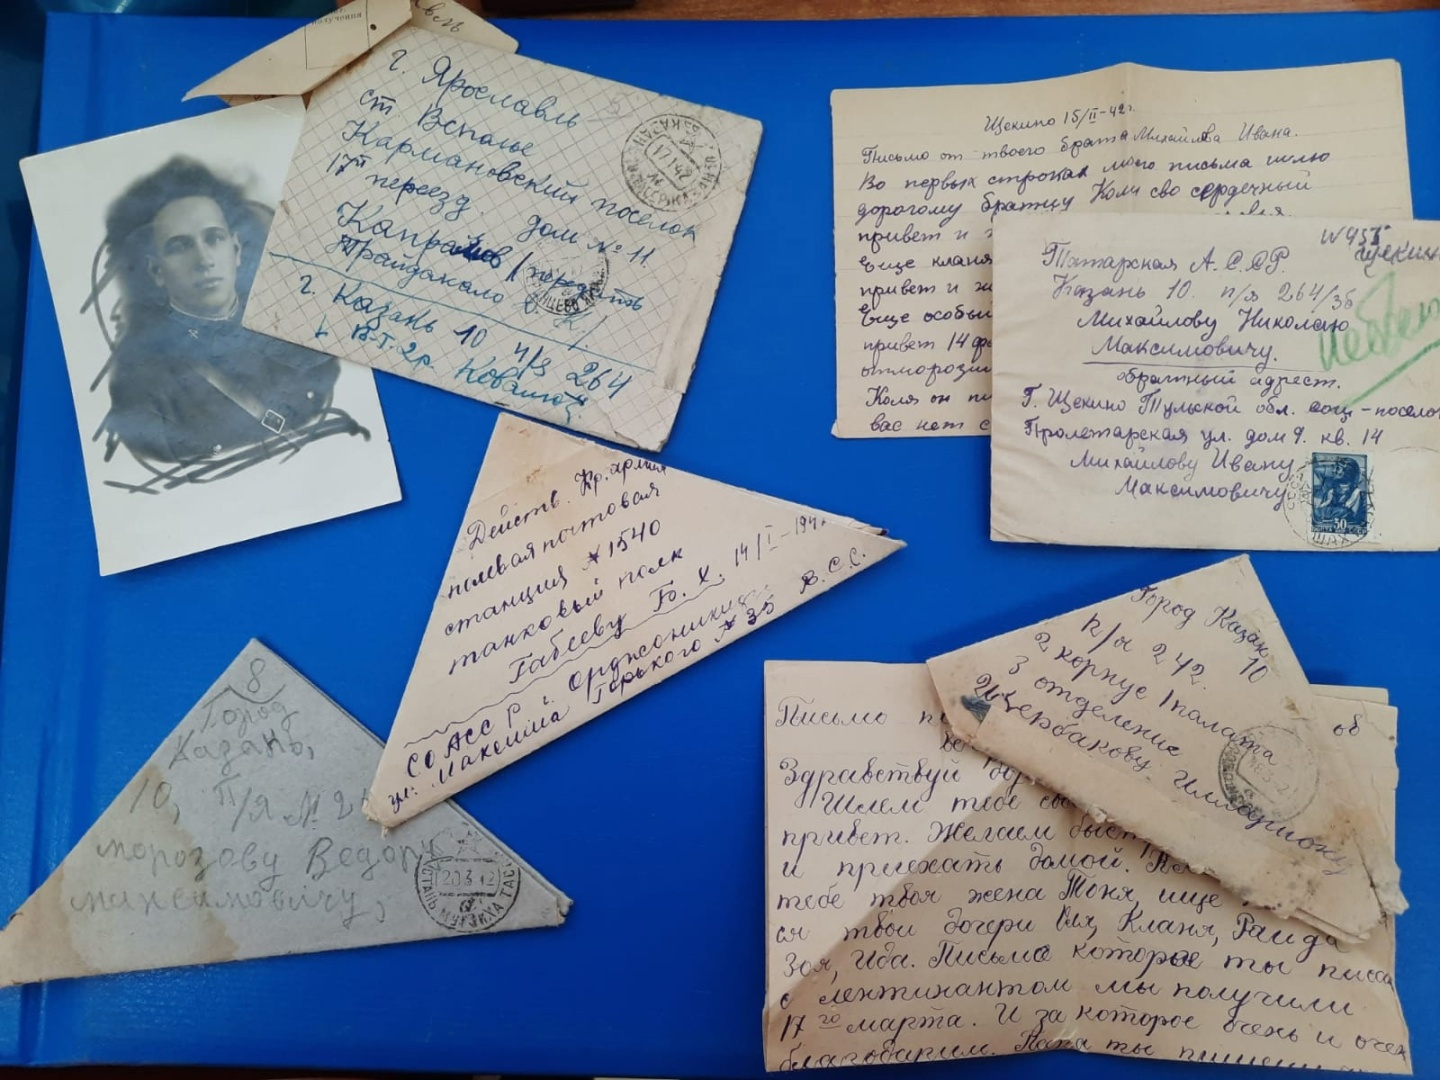 получения
г. Ярославль
ст. Вспалье
Кармановский поселок
17й переезд. дом № 11.
передать
г. Казань 10 п/я 264
Щекино 15/II-42г.
Письмо от твоего брата Михайлова Ивана.
Во первых строках моего письма шлю
дорогому братцу Коли сво сердечный
привет и
Еще кланя
привет и ж
Еще особый
привет 14 фе
отморозил
Коля он пи
вас нет с
Татарская А.С.С.Р.
Казань 10. п/я 264/3б
Михайлову Николаю
Максимовичу.
обратный адрест.
Г. Щекино Тульской обл. соц-поселок
Пролетарская ул. дом 9. кв. 14
Михайлову Ивану
Максимовичу
30
Действ. Кр. армия
полевая почтовая
станция № 1540
танковый полк
Габееву Б. Х. 14/I-194
СОАССР г. Орджоникидзе
ул: Максима Горького № 35 В.С.С.
8
Город
Казань,
10, п/я №
морозову Ведору
максимовичу,
20 3 42
Город Казан
10
п/я 242.
2 корпус 1 палата
3 отделение
Щербакову. Иллариону
Письмо п
об
Здравствуй дор
Шлем тебе сво
привет. Желаем быст
и приехать домой.
тебе твоя жена Тоня, ище
ся твои дочери Оля, Кланя, Раида
Зоя, Ида. Письмо которое ты писса
с лентинантом мы получили
17го марта. И за которое очень и очен
благодарим. Папа ты пишеш